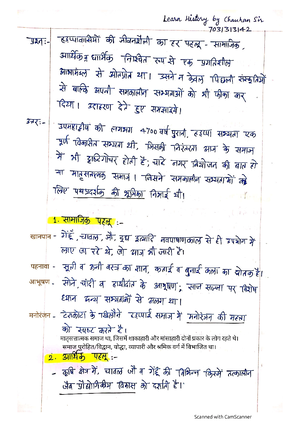 Learn History by Chauhan Sir
7031313142
प्रश्न:- "हड़प्पावासियों की जीवनशैली का हर पहलू - सामाजिक,
आर्थिक व धार्मिक निश्चित रूप से एक प्रगतिशील
से ओतप्रोत था। उसने न केवल पिछली संस्कृतियों
से बल्कि अपनी समकालीन सभ्यताओं को भी फीका कर
दिया। उदाहरण देते हुए समझाये।
उत्तर:- उपमहाद्वीप की लगभग 4700 वर्ष पुरानी, हड़प्पा सभ्यता एक
पूर्ण विकसित सभ्यता थी, जिसकी निरन्तरता आज के समाज
में भी दृष्टिगोचर होती है; चाहे नगर नियोजन की बात हो
या मातृसत्तात्मक समाज। जिसने समकालीन सभ्यताओं के
लिए पथप्रदर्शक की भूमिका निभाई थी।
1. सामाजिक पहलू :-
खानपान - गेहूँ, चावल, जौ, दूध इत्यादि नवपाषाणकाल से ही उपयोग में
लाए जा रहे थे, जो आज भी जारी है।
पहनावा - सूती व ऊनी वस्त्र का ज्ञान, कताई व बुनाई कला का द्योतक है।
आभूषण - सोने, चाँदी व हाथीदांत के आभूषण; साज सज्जा पर विशेष
ध्यान अन्य सभ्यताओं से अलग था।
मनोरंजन - टेराकोटा के खिलौने हड़प्पाई समाज में मनोरंजन की महत्ता
को स्पष्ट करते है।
मातृसत्तात्मक समाज था, जिसमें शाकाहारी और मांसाहारी दोनों प्रकार के लोग रहते थे।
समाज पुरोहित/विद्वान, योद्धा, व्यापारी और श्रमिक वर्ग में विभाजित था।
2. आर्थिक पहलू :-
- कृषि क्षेत्र में, चावल जौ व गेहूँ की विभिन्न किस्में तत्कालीन
जैव प्रौद्योगिकीय विकास को दर्शाती है।
Scanned with CamScanner